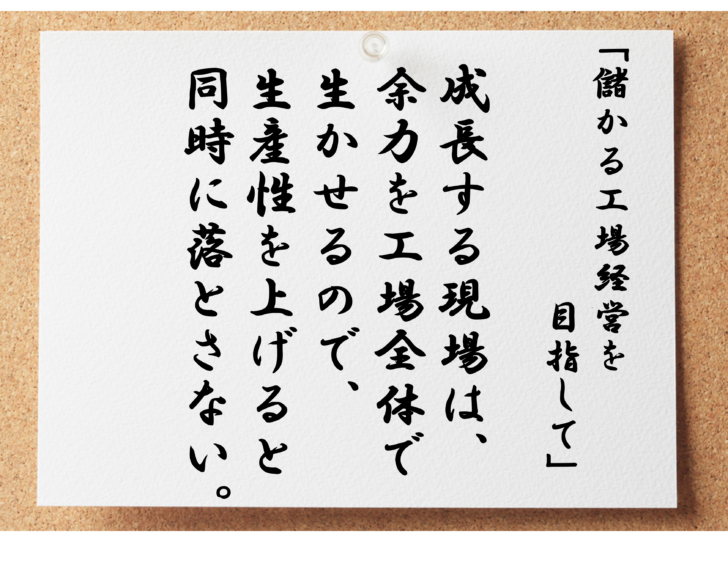 「儲かる工場経営を
目指して」
成長する現場は、
余力を工場全体で
生かせるので、
生産性を上げると
同時に落とさない。